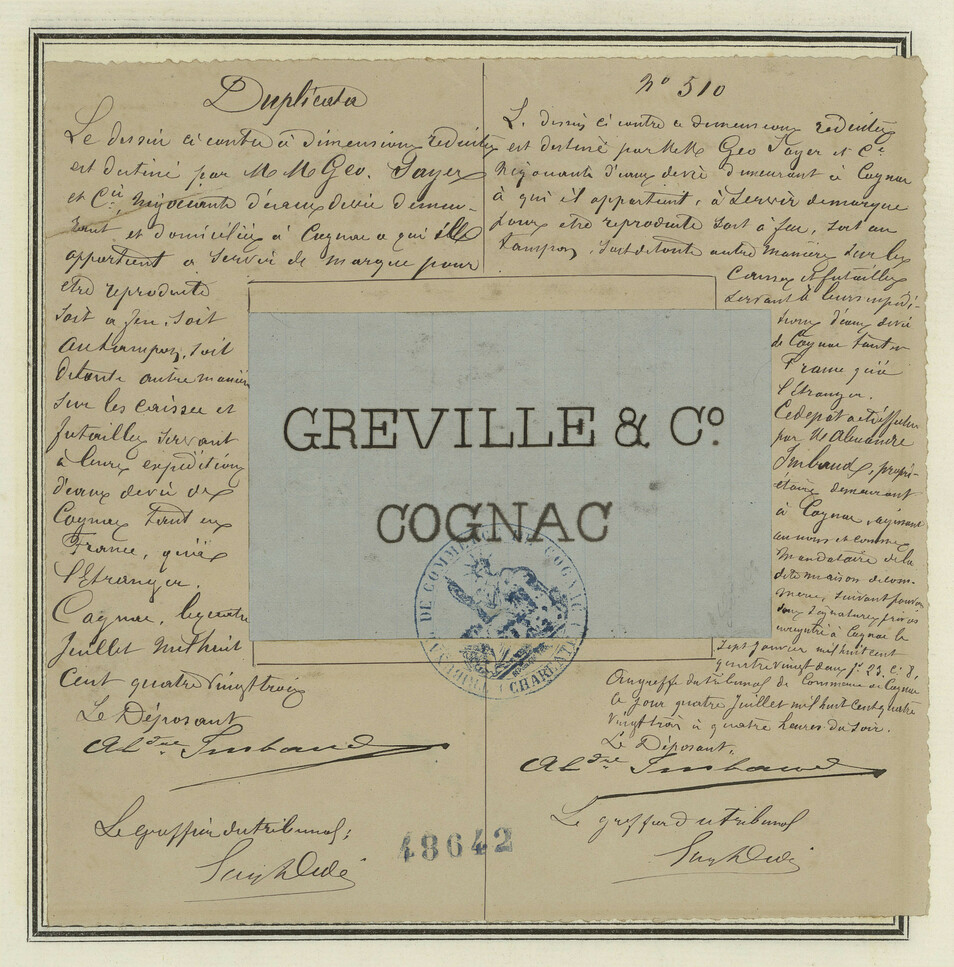 Duplicata
Le dessin ci contre à dimensions réduites
est destiné par M M Geo. Sayer
et Cie, Négociants d'eaux devie demeu-
rant et domiciliés à Cognac a qui ille
appartient a servir de marque pour
etre reproduite
soit a feu, soit
autampon, soit
detoute autre manière
sur les caisses et
futailles servant
à leurs expéditions
d'eaux devie de
Cognac tant en
France, qu'à
l'Etranger.
Cognac, lequatre
Juillet mil huit
cent quatre vingt trois
Le Déposant
Aldre Imbaud
Le greffier du tribunal;
N° 510
L. dessin ci contre a dimensions réduites
est destiné par M M Geo Sayer et Cie
Négociants d'eaux devie demeurant à Cognac
à qui il appartient, à servir demarque
pour etre reproduite soit à feu, soit au
tampon, soit detoute autre manière sur les
caisses et futailles
servant à leurs expédi-
tions d'eaux devie
de Cognac tant en
France qu'à
l'Etranger.
Cedepot a été effectué
par M Alexandre
Imbaud, propri-
étaire demeurant
à Cognac, agissant
au nom et comme
mandataire de la
dite maison de com-
merce, suivant pouvoir
sous signatures privées
enregistré à Cognac le
sept janvier mil huit cent
quatre vingt deux f° 23. c. 8,
Au greffe du tribunal de Commerce de Cognac
le jour quatre Juillet mil huit cent quatre
vingt trois à quatre heures du soir.
Le Déposant.
Aldre Imbaud
Le greffier du tribunal
GREVILLE & Cº.
COGNAC
TRIBUNAL DE COMMERCE DE COGNAC
(CHARENTE)
48642